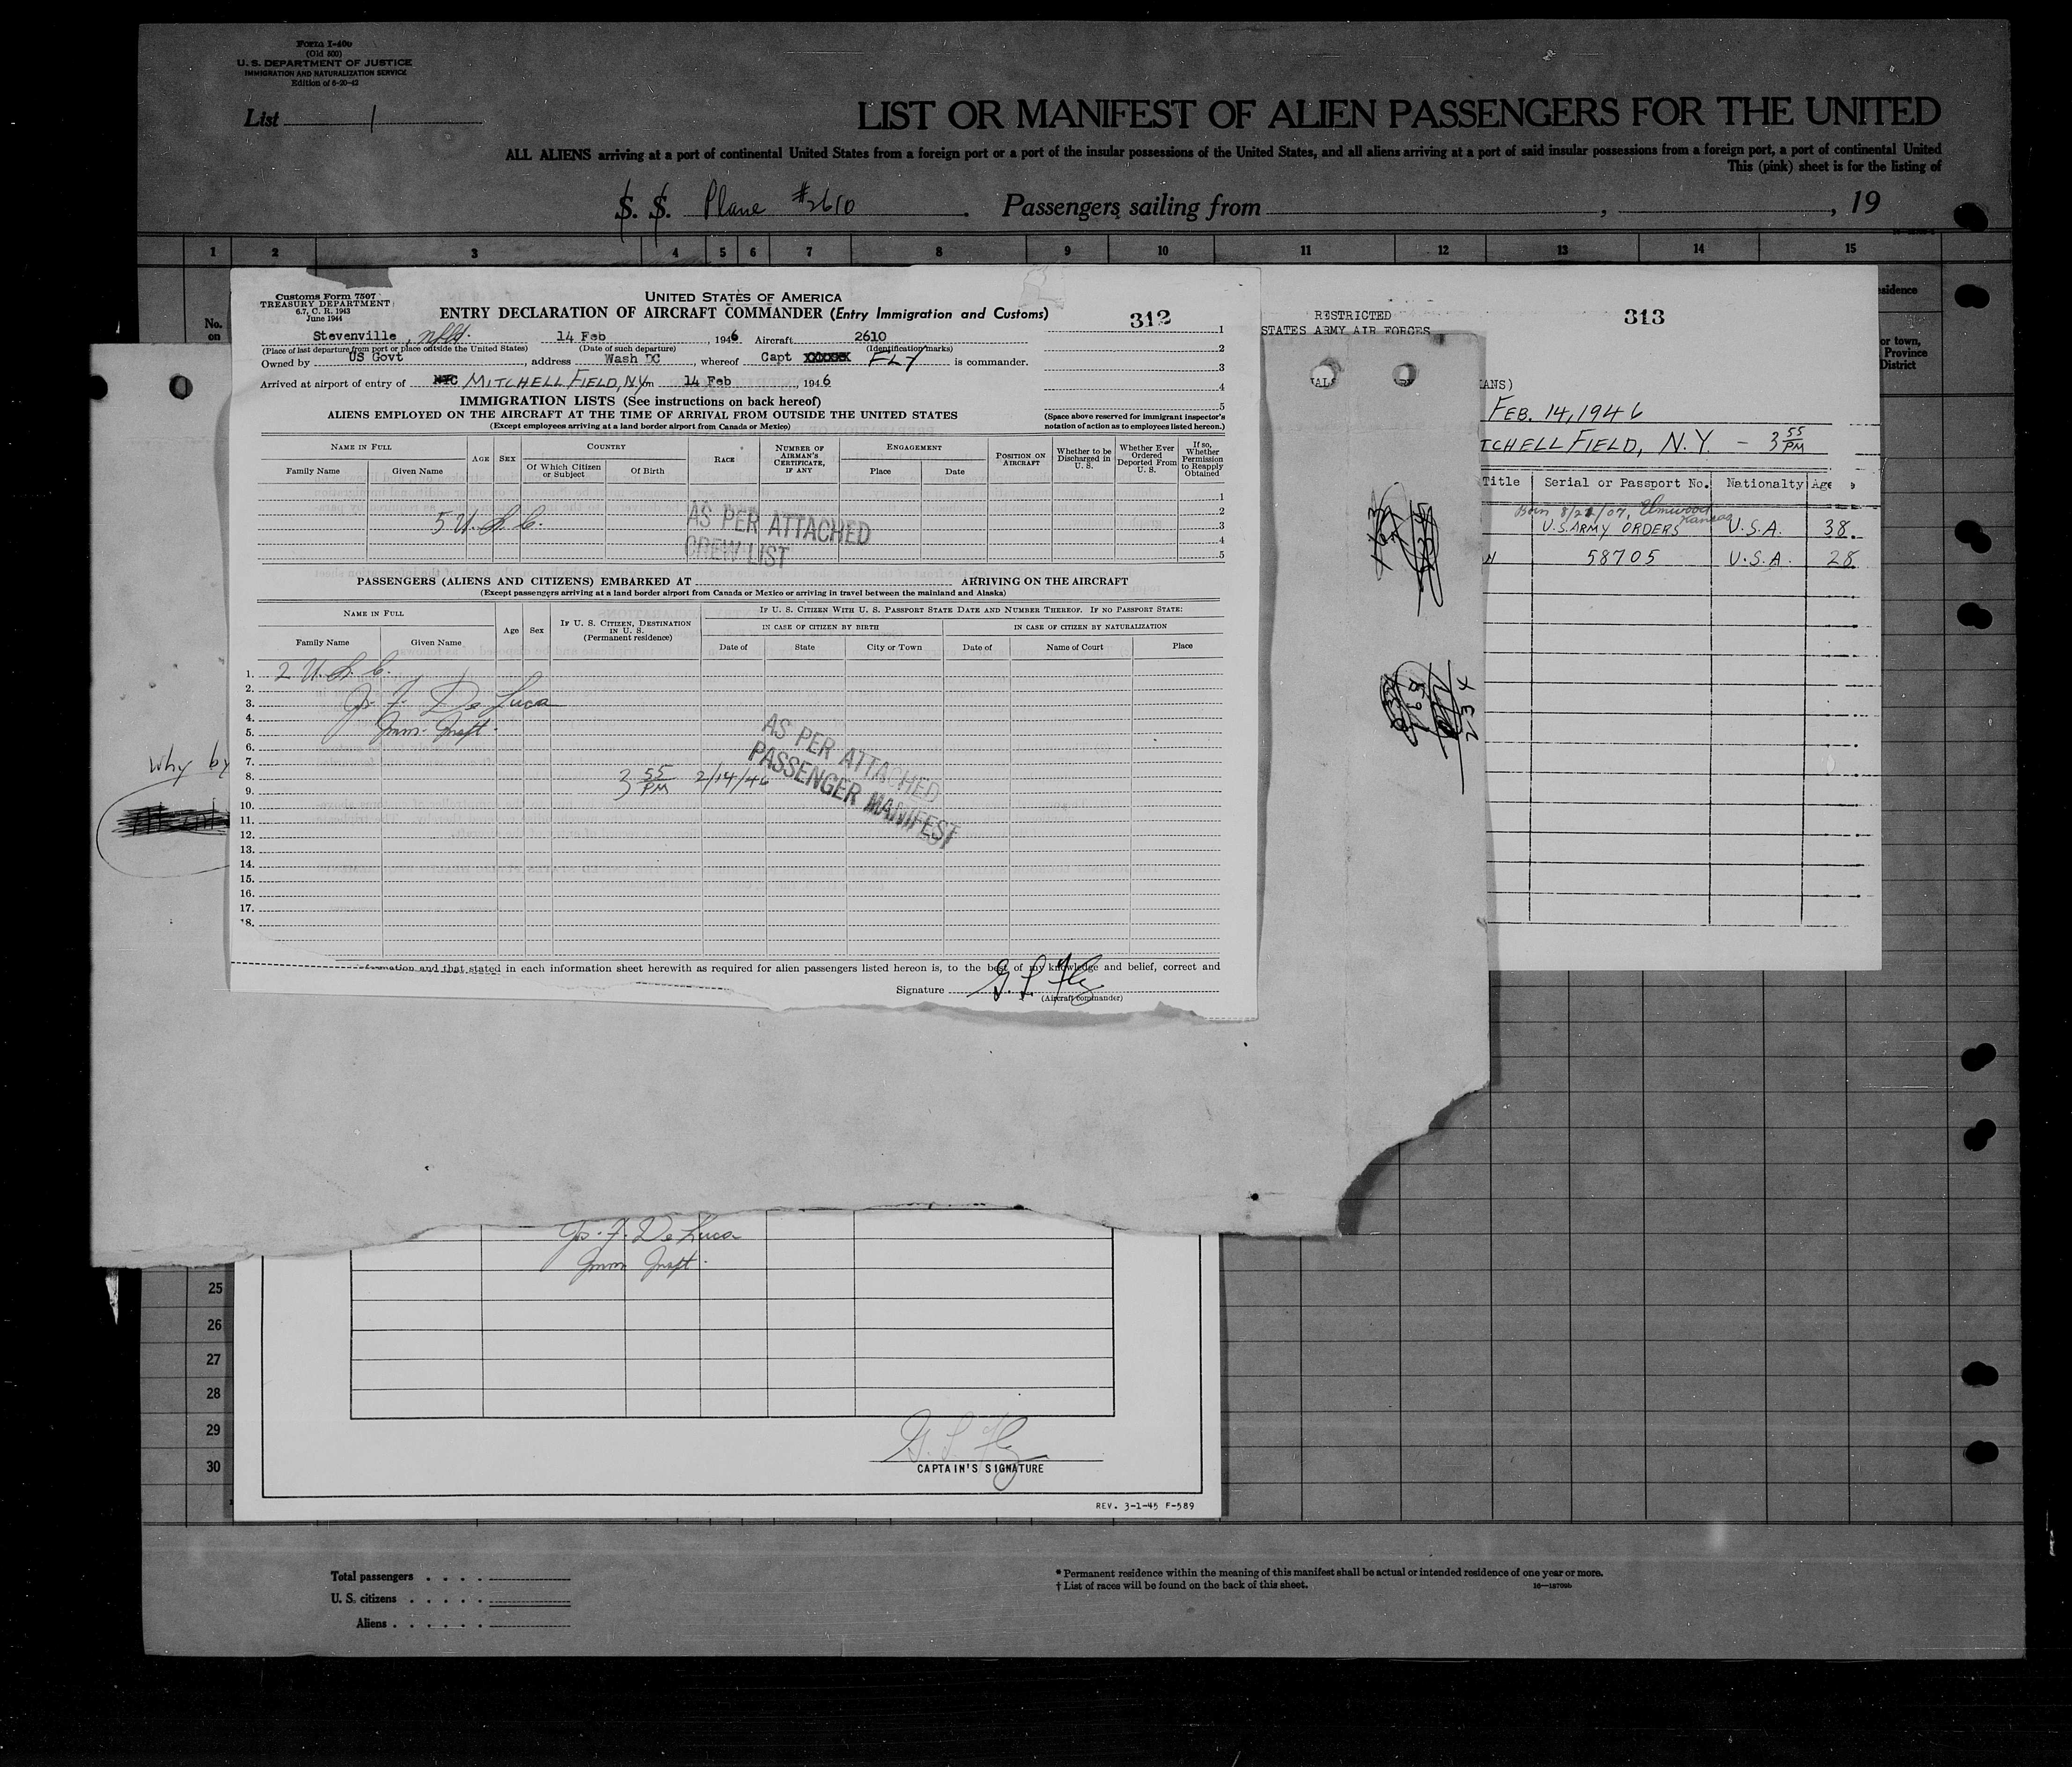 Form I-400
(Old 500)
U. S. DEPARTMENT OF JUSTICE
IMMIGRATION AND NATURALIZATION SERVICE
Edition of 6-20-42
List 1
LIST OR MANIFEST OF ALIEN PASSENGERS FOR THE UNITED
ALL ALIENS arriving at a port of continental United States from a foreign port or a port of the insular possessions of the United States, and all aliens arriving at a port of said insular possessions from a foreign port, a port of continental United
This (pink) sheet is for the listing of
S. S. Plane #2610. Passengers sailing from , , 19
1 2 3 4 5 6 7 8 9 10 11 12 13 14 15
No.
on
Customs Form 7507
TREASURY DEPARTMENT
6.7, C. R. 1943
June 1944
UNITED STATES OF AMERICA
ENTRY DECLARATION OF AIRCRAFT COMMANDER (Entry Immigration and Customs)
312
Stevenville, Nfld. 14 Feb, 1946 Aircraft 2610
(Place of last departure from port or place outside the United States) (Date of such departure) (Identification marks)
Owned by US Govt, address Wash DC, whereof Capt FLY is commander.
Arrived at airport of entry of NYC MITCHELL FIELD, N.Y. on 14 Feb, 1946
IMMIGRATION LISTS (See instructions on back hereof)
ALIENS EMPLOYED ON THE AIRCRAFT AT THE TIME OF ARRIVAL FROM OUTSIDE THE UNITED STATES
(Except employees arriving at a land border airport from Canada or Mexico)
1
2
3
4
5
(Space above reserved for immigrant inspector's
notation of action as to employees listed hereon.)
NAME IN FULL
Family Name Given Name
AGE SEX
COUNTRY
Of Which Citizen or Subject Of Birth
RACE
NUMBER OF AIRMAN'S CERTIFICATE, IF ANY
ENGAGEMENT
Place Date
POSITION ON AIRCRAFT
Whether to be Discharged in U. S.
Whether Ever Ordered Deported From U. S.
If so, Whether Permission to Reapply Obtained
5 U. S. C.
AS PER ATTACHED
CREW LIST
1
2
3
4
5
PASSENGERS (ALIENS AND CITIZENS) EMBARKED AT ARRIVING ON THE AIRCRAFT
(Except passengers arriving at a land border airport from Canada or Mexico or arriving in travel between the mainland and Alaska)
NAME IN FULL
Family Name Given Name
Age Sex
IF U. S. CITIZEN, DESTINATION IN U. S.
(Permanent residence)
IF U. S. CITIZEN WITH U. S. PASSPORT STATE DATE AND NUMBER THEREOF. IF NO PASSPORT STATE:
IN CASE OF CITIZEN BY BIRTH IN CASE OF CITIZEN BY NATURALIZATION
Date of State City or Town Date of Name of Court Place
1. 2 U. S. C.
2.
3. Js. F. De Luca
4.
5. Imm. Inspt.
6.
7.
8. 3 55 PM 2/14/46
9.
10.
11.
12.
13.
14.
15.
16.
17.
18.
AS PER ATTACHED
PASSENGER MANIFEST
information and that stated in each information sheet herewith as required for alien passengers listed hereon is, to the best of my knowledge and belief, correct and
Signature G. L. Fly
(Aircraft commander)
RESTRICTED
STATES ARMY AIR FORCES
313
FEB. 14, 1946
TCHELL FIELD, N.Y. - 3 55 PM
Title Serial or Passport No. Nationalty Age
Born 8/22/07, Elmwood Kansas
U.S. ARMY ORDERS U.S.A. 38.
N 58705 U.S.A. 28
esidence
or town,
Province
District
163
234
Why by
Js. F. De Luca
Imm Inspt.
25
26
27
28
29
30
G. L. Fly
CAPTAIN'S SIGNATURE
REV. 3-1-45 F-589
Total passengers
U. S. citizens
Aliens
* Permanent residence within the meaning of this manifest shall be actual or intended residence of one year or more.
† List of races will be found on the back of this sheet.